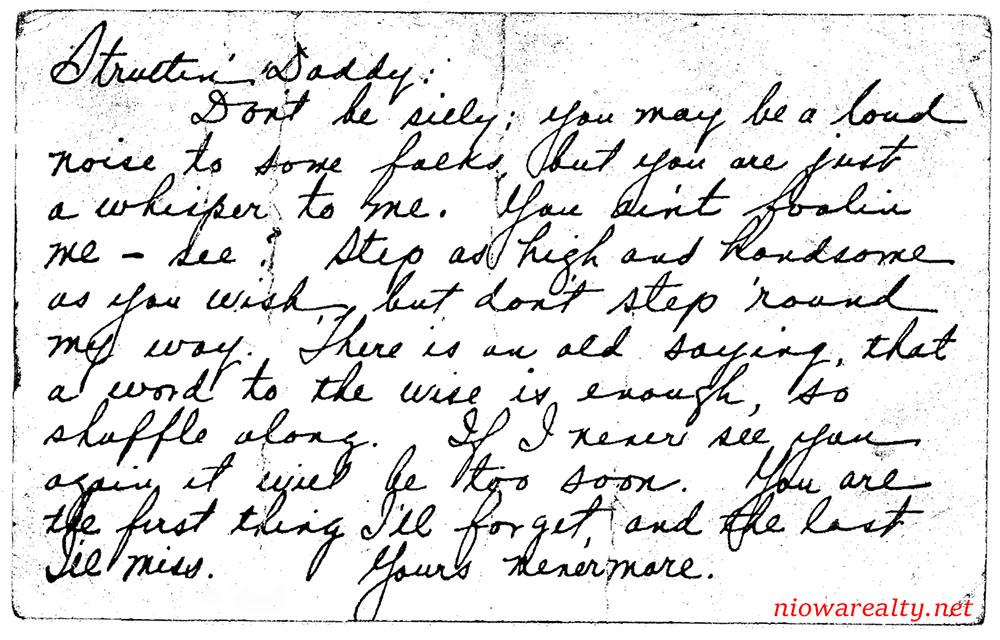 Struttin' Daddy:
Don't be silly; you may be a loud
noise to some folks, but you are just
a whisper to me. You ain't foolin
me – see? Step as high and handsome
as you wish, but don't step 'round
my way. There is an old saying, that
a word to the wise is enough, so
shuffle along. If I never see you
again it will be too soon. You are
the first thing I'll forget, and the last
I'll miss. Yours nevermore.
niowarealty.net